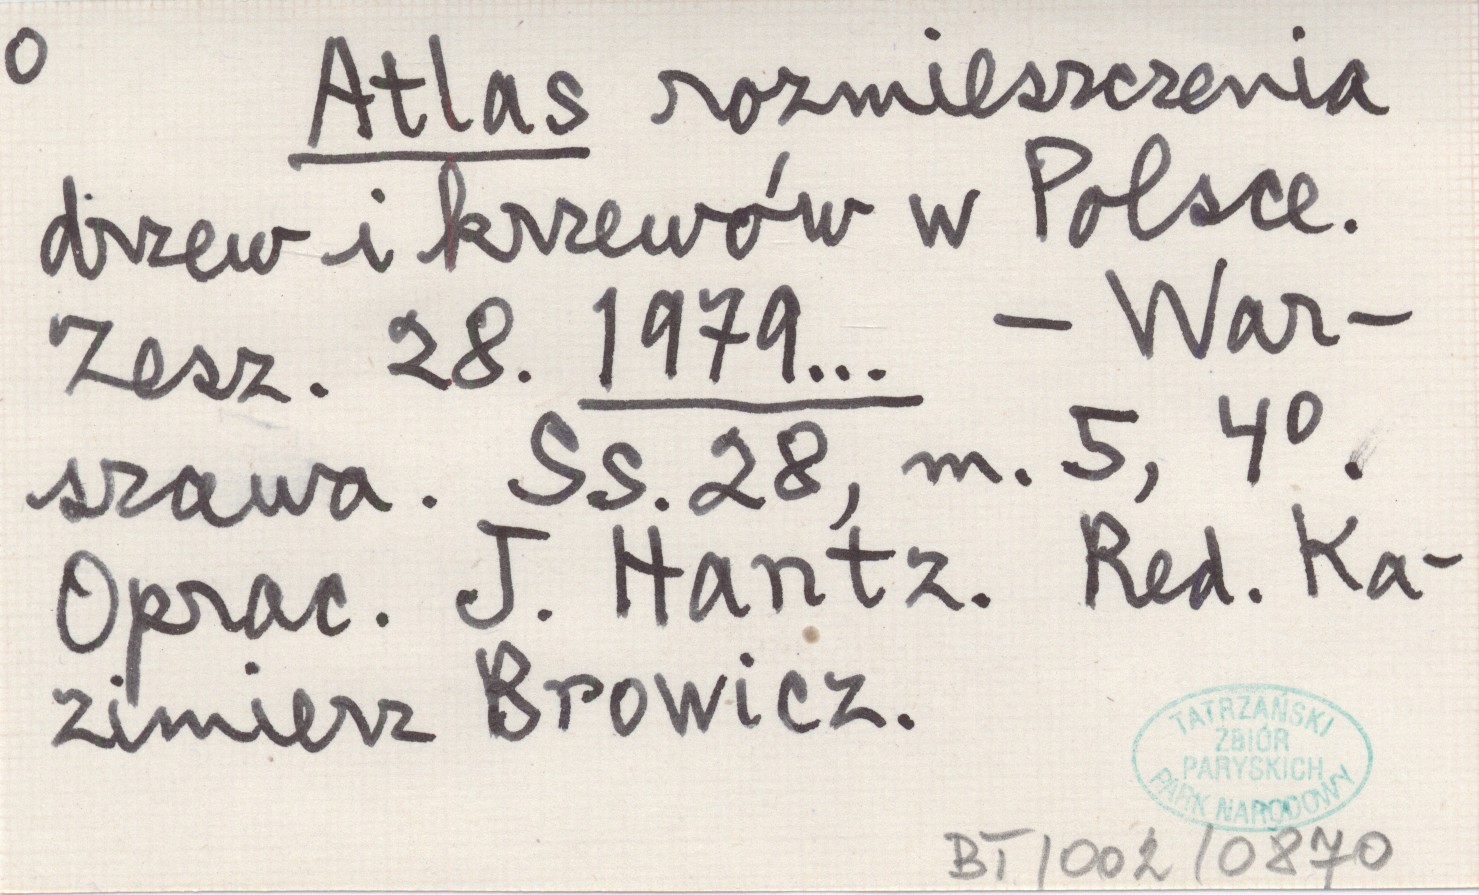 O
Atlas rozmieszczenia
drzew i krzewów w Polsce.
Zesz. 28. 1979... — War-
szawa. Ss. 28, m. 5, 4º.
Oprac. J. Hantz. Red. Ka-
zimierz Browicz.
TATRZAŃSKI
ZBIÓR
PARYSKICH
PARK NARODOWY
BT/002/0870